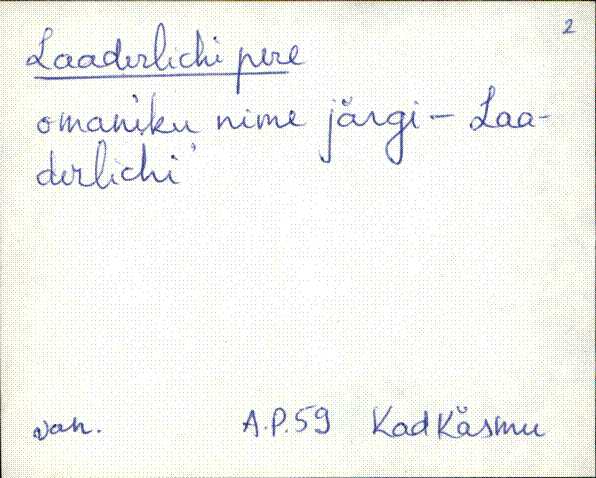 2
Laaderlichi pere
omaniku nime järgi – Laa-
derlichi
van. A.P.59 Kad Käsmu